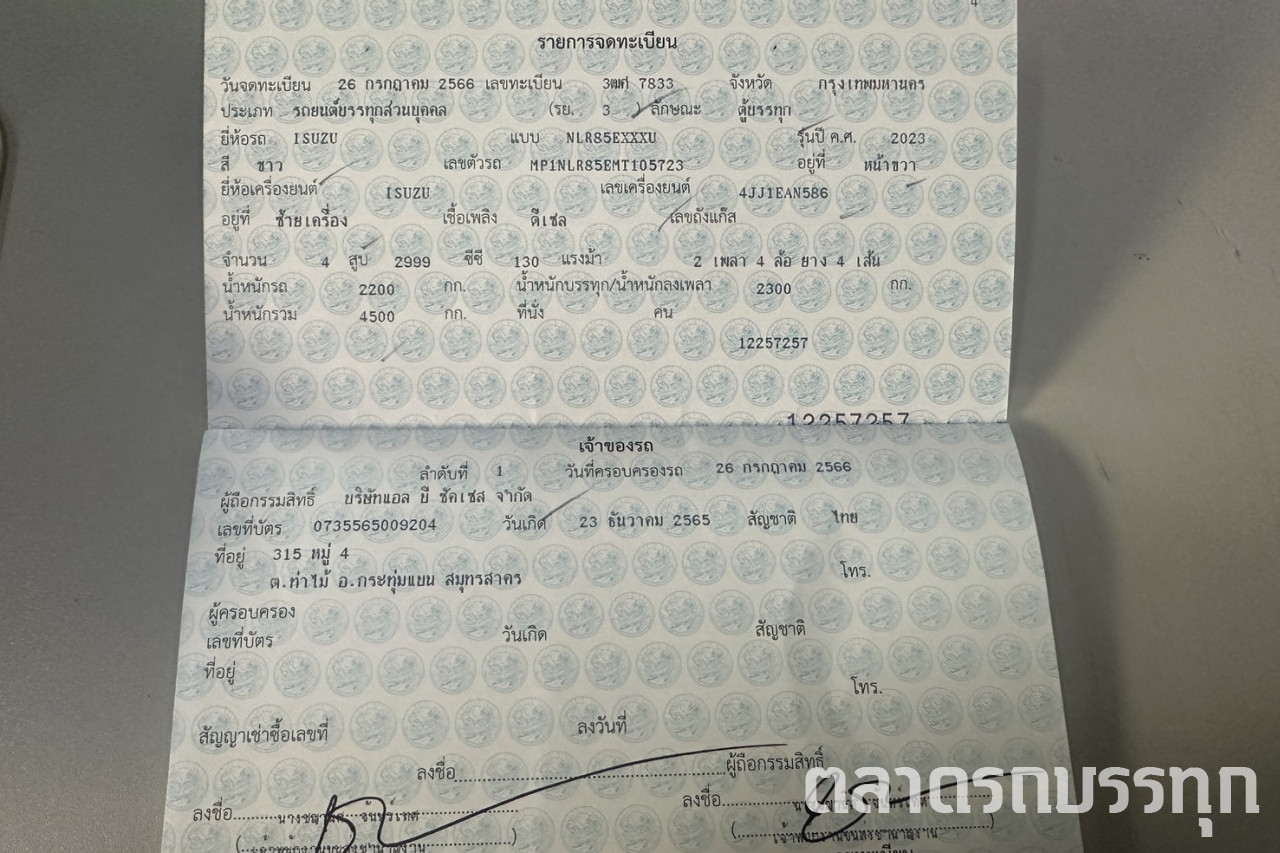 4
รายการจดทะเบียน
วันจดทะเบียน 26 กรกฎาคม 2566 เลขทะเบียน 3ฒศ 7833 จังหวัด กรุงเทพมหานคร
ประเภท รถยนต์บรรทุกส่วนบุคคล (รย. 3 ) ลักษณะ ตู้บรรทุก
ยี่ห้อรถ ISUZU แบบ NLR85EXXXU รุ่นปี ค.ศ. 2023
สี ขาว เลขตัวรถ MP1NLR85EMT105723 อยู่ที่ หน้าขวา
ยี่ห้อเครื่องยนต์ ISUZU เลขเครื่องยนต์ 4JJ1EAN586
อยู่ที่ ซ้ายเครื่อง เชื้อเพลิง ดีเซล เลขถังแก๊ส
จำนวน 4 สูบ 2999 ซีซี 130 แรงม้า 2 เพลา 4 ล้อ ยาง 4 เส้น
น้ำหนักรถ 2200 กก. น้ำหนักบรรทุก/น้ำหนักลงเพลา 2300 กก.
น้ำหนักรวม 4500 กก. ที่นั่ง คน
12257257
12257257
เจ้าของรถ
ลำดับที่ 1 วันที่ครอบครองรถ 26 กรกฎาคม 2566
ผู้ถือกรรมสิทธิ์ บริษัทแอล บี ซัคเซส จำกัด
เลขที่บัตร 0735565009204 วันเกิด 23 ธันวาคม 2565 สัญชาติ ไทย
ที่อยู่ 315 หมู่ 4
ต.ท่าไม้ อ.กระทุ่มแบน สมุทรสาคร โทร.
ผู้ครอบครอง
เลขที่บัตร วันเกิด สัญชาติ
ที่อยู่
โทร.
สัญญาเช่าซื้อเลขที่ ลงวันที่
ลงชื่อ ผู้ถือกรรมสิทธิ์
ลงชื่อ ลงชื่อ
ตลาดรถบรรทุก